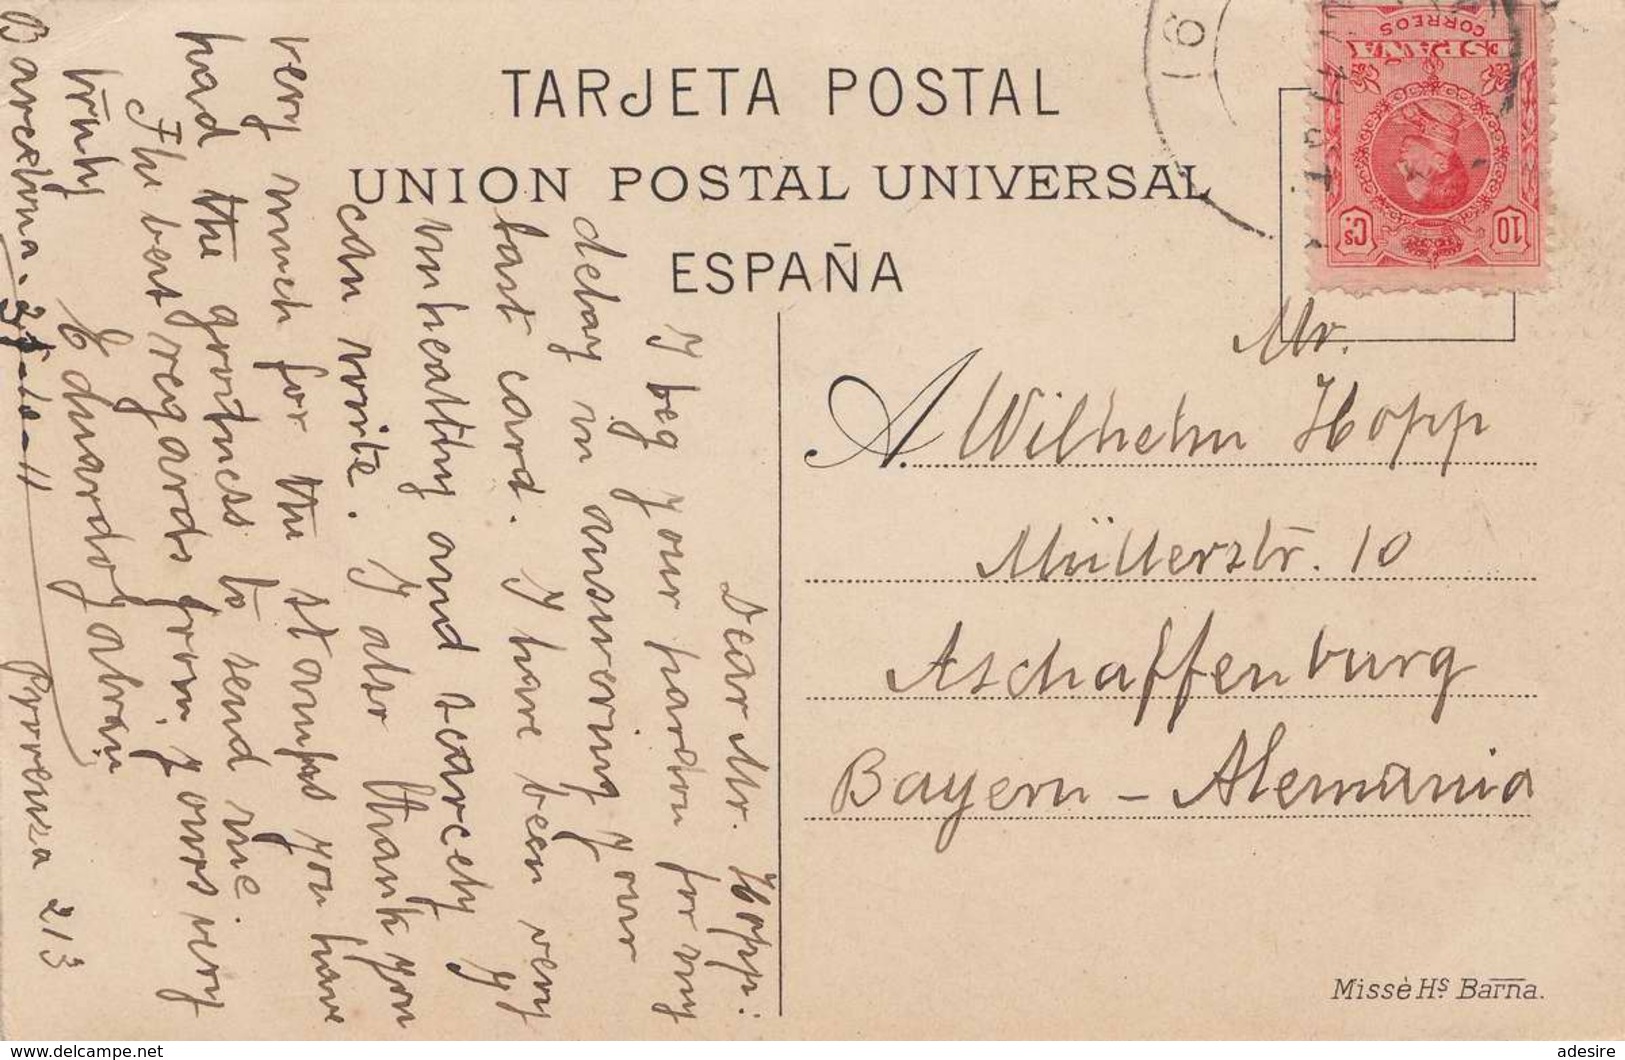 TARJETA POSTAL
UNION POSTAL UNIVERSAL
ESPAÑA
CORREOS
ESPAÑA
10 Cs
Mr.
A. Wilhelm Hopp
Müllerstr. 10
Aschaffenburg
Bayern - Alemania
Missè Hs. Barna.
Dear Mr. Hopp:
I beg your pardon for my
delay in answering your
last card. I have been very
unhealthy and scarcely I
can write. I also thank you
very much for the stamps you have
had the goodness to send me.
The best regards from yours very
truly
Barcelona
Provenza 213
adesire